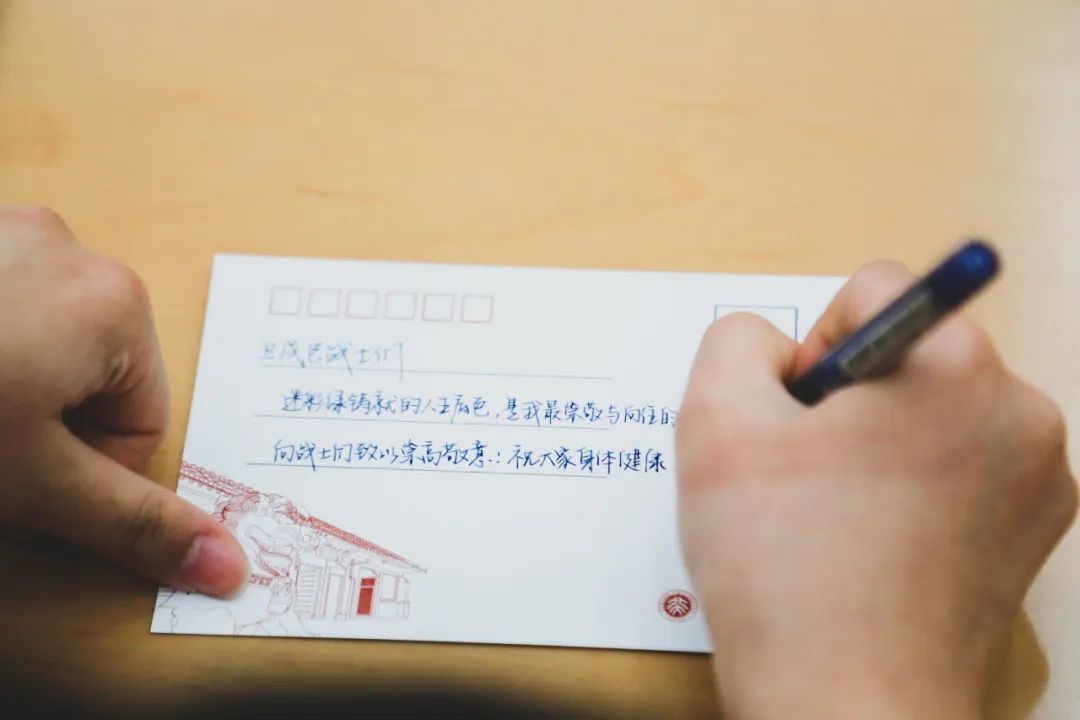 旦成民战士们
迷彩绿铸就的人生底色,是我最崇敬与向往的
向战士们致以崇高敬意:祝大家身体健康